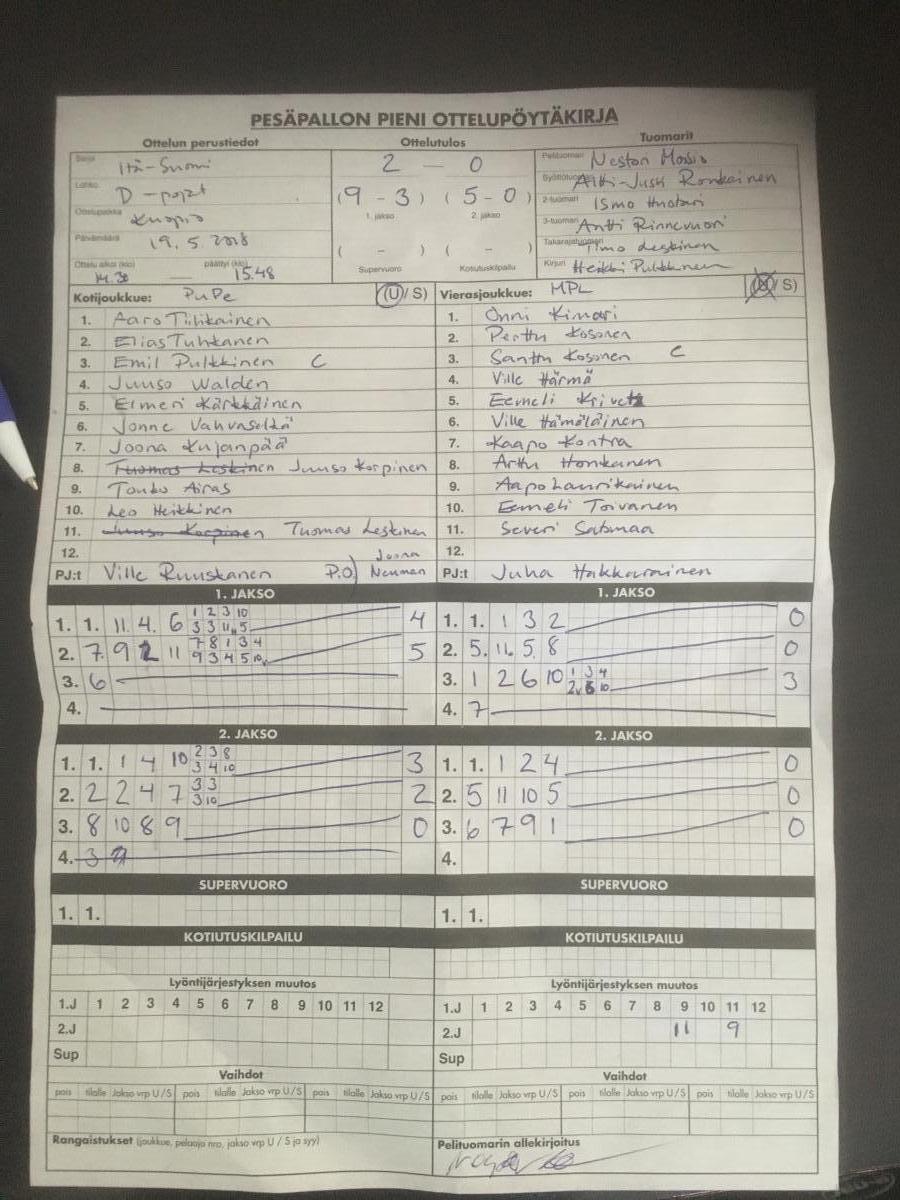 PESÄPALLON PIENI OTTELUPÖYTÄKIRJA
Ottelun perustiedot Ottelutulos Tuomarit
Sarja Itä-Suomi
Lohko D-pojat
Ottelupaikka Kuopio
Päivämäärä 19.5.2018
Ottelu alkoi (klo) päättyi (klo)
14.30 — 15.48
2 — 0
(9 - 3) (5 - 0)
1. jakso 2. jakso
( - ) ( - )
Supervuoro Kotiutuskilpailu
Pelituomari Nestori Moisio
Syöttötuomari Antti-Jussi Ronkainen
2-tuomari Ismo Huotari
3-tuomari Antti Rinnevuori
Takarajatuomari Timo Leskinen
Kirjuri Heikki Pulkkinen
Kotijoukkue: PuPe (U/ S)
1. Aaro Tiilikainen
2. Elias Tuhkanen
3. Emil Pulkkinen C
4. Juuso Walden
5. Elmeri Kärkkäinen
6. Jonne Vahvaselkä
7. Joona Kujanpää
8. Tuomas Leskinen Juuso Korpinen
9. Touko Airas
10. Leo Heikkinen
11. Juuso Korpinen Tuomas Leskinen
12.
PJ:t Ville Ruuskanen P.O) Joona Neuman
Vierasjoukkue: MPL (U/ S)
1. Onni Kimari
2. Perttu Kosonen
3. Santtu Kosonen C
4. Ville Härmä
5. Eemeli
6. Ville Hämäläinen
7. Kaapo Kontra
8. Arttu Honkanen
9. Aapo Laurikainen
10. Eemeli Toivanen
11. Severi
12.
PJ:t Juha Hakkarainen
1. JAKSO
1. 1. 11. 4. 6 1 2 3 10 4
3 3 11 5
2. 7. 9 2 11 7 8 1 3 4 5
9 3 4 5 10
3. 6
4.
1. JAKSO
1. 1. 1 3 2 0
2. 5. 11. 5 8 0
3. 1 2 6 10 1 3 4 3
2 6 10
4. 7
2. JAKSO
1. 1. 1 4 10 2 3 8 3
3 4 10
2. 2 2 4 7 3 3 2
3 10
3. 8 10 8 9 0
4. 3
2. JAKSO
1. 1. 1 2 4 0
2. 5 11 10 5 0
3. 6 7 9 1 0
4.
SUPERVUORO
1. 1.
SUPERVUORO
1. 1.
KOTIUTUSKILPAILU
KOTIUTUSKILPAILU
Lyöntijärjestyksen muutos
1.J 1 2 3 4 5 6 7 8 9 10 11 12
2.J
Sup
Lyöntijärjestyksen muutos
1.J 1 2 3 4 5 6 7 8 9 10 11 12
2.J 11 9
Sup
Vaihdot
pois tilalle Jakso vrp U/S pois tilalle Jakso vrp U/S pois tilalle Jakso vrp U/S
Vaihdot
pois tilalle Jakso vrp U/S pois tilalle Jakso vrp U/S pois tilalle Jakso vrp U/S
Rangaistukset (joukkue, pelaaja nro, jakso vrp U / S ja syy)
Pelituomarin allekirjoitus